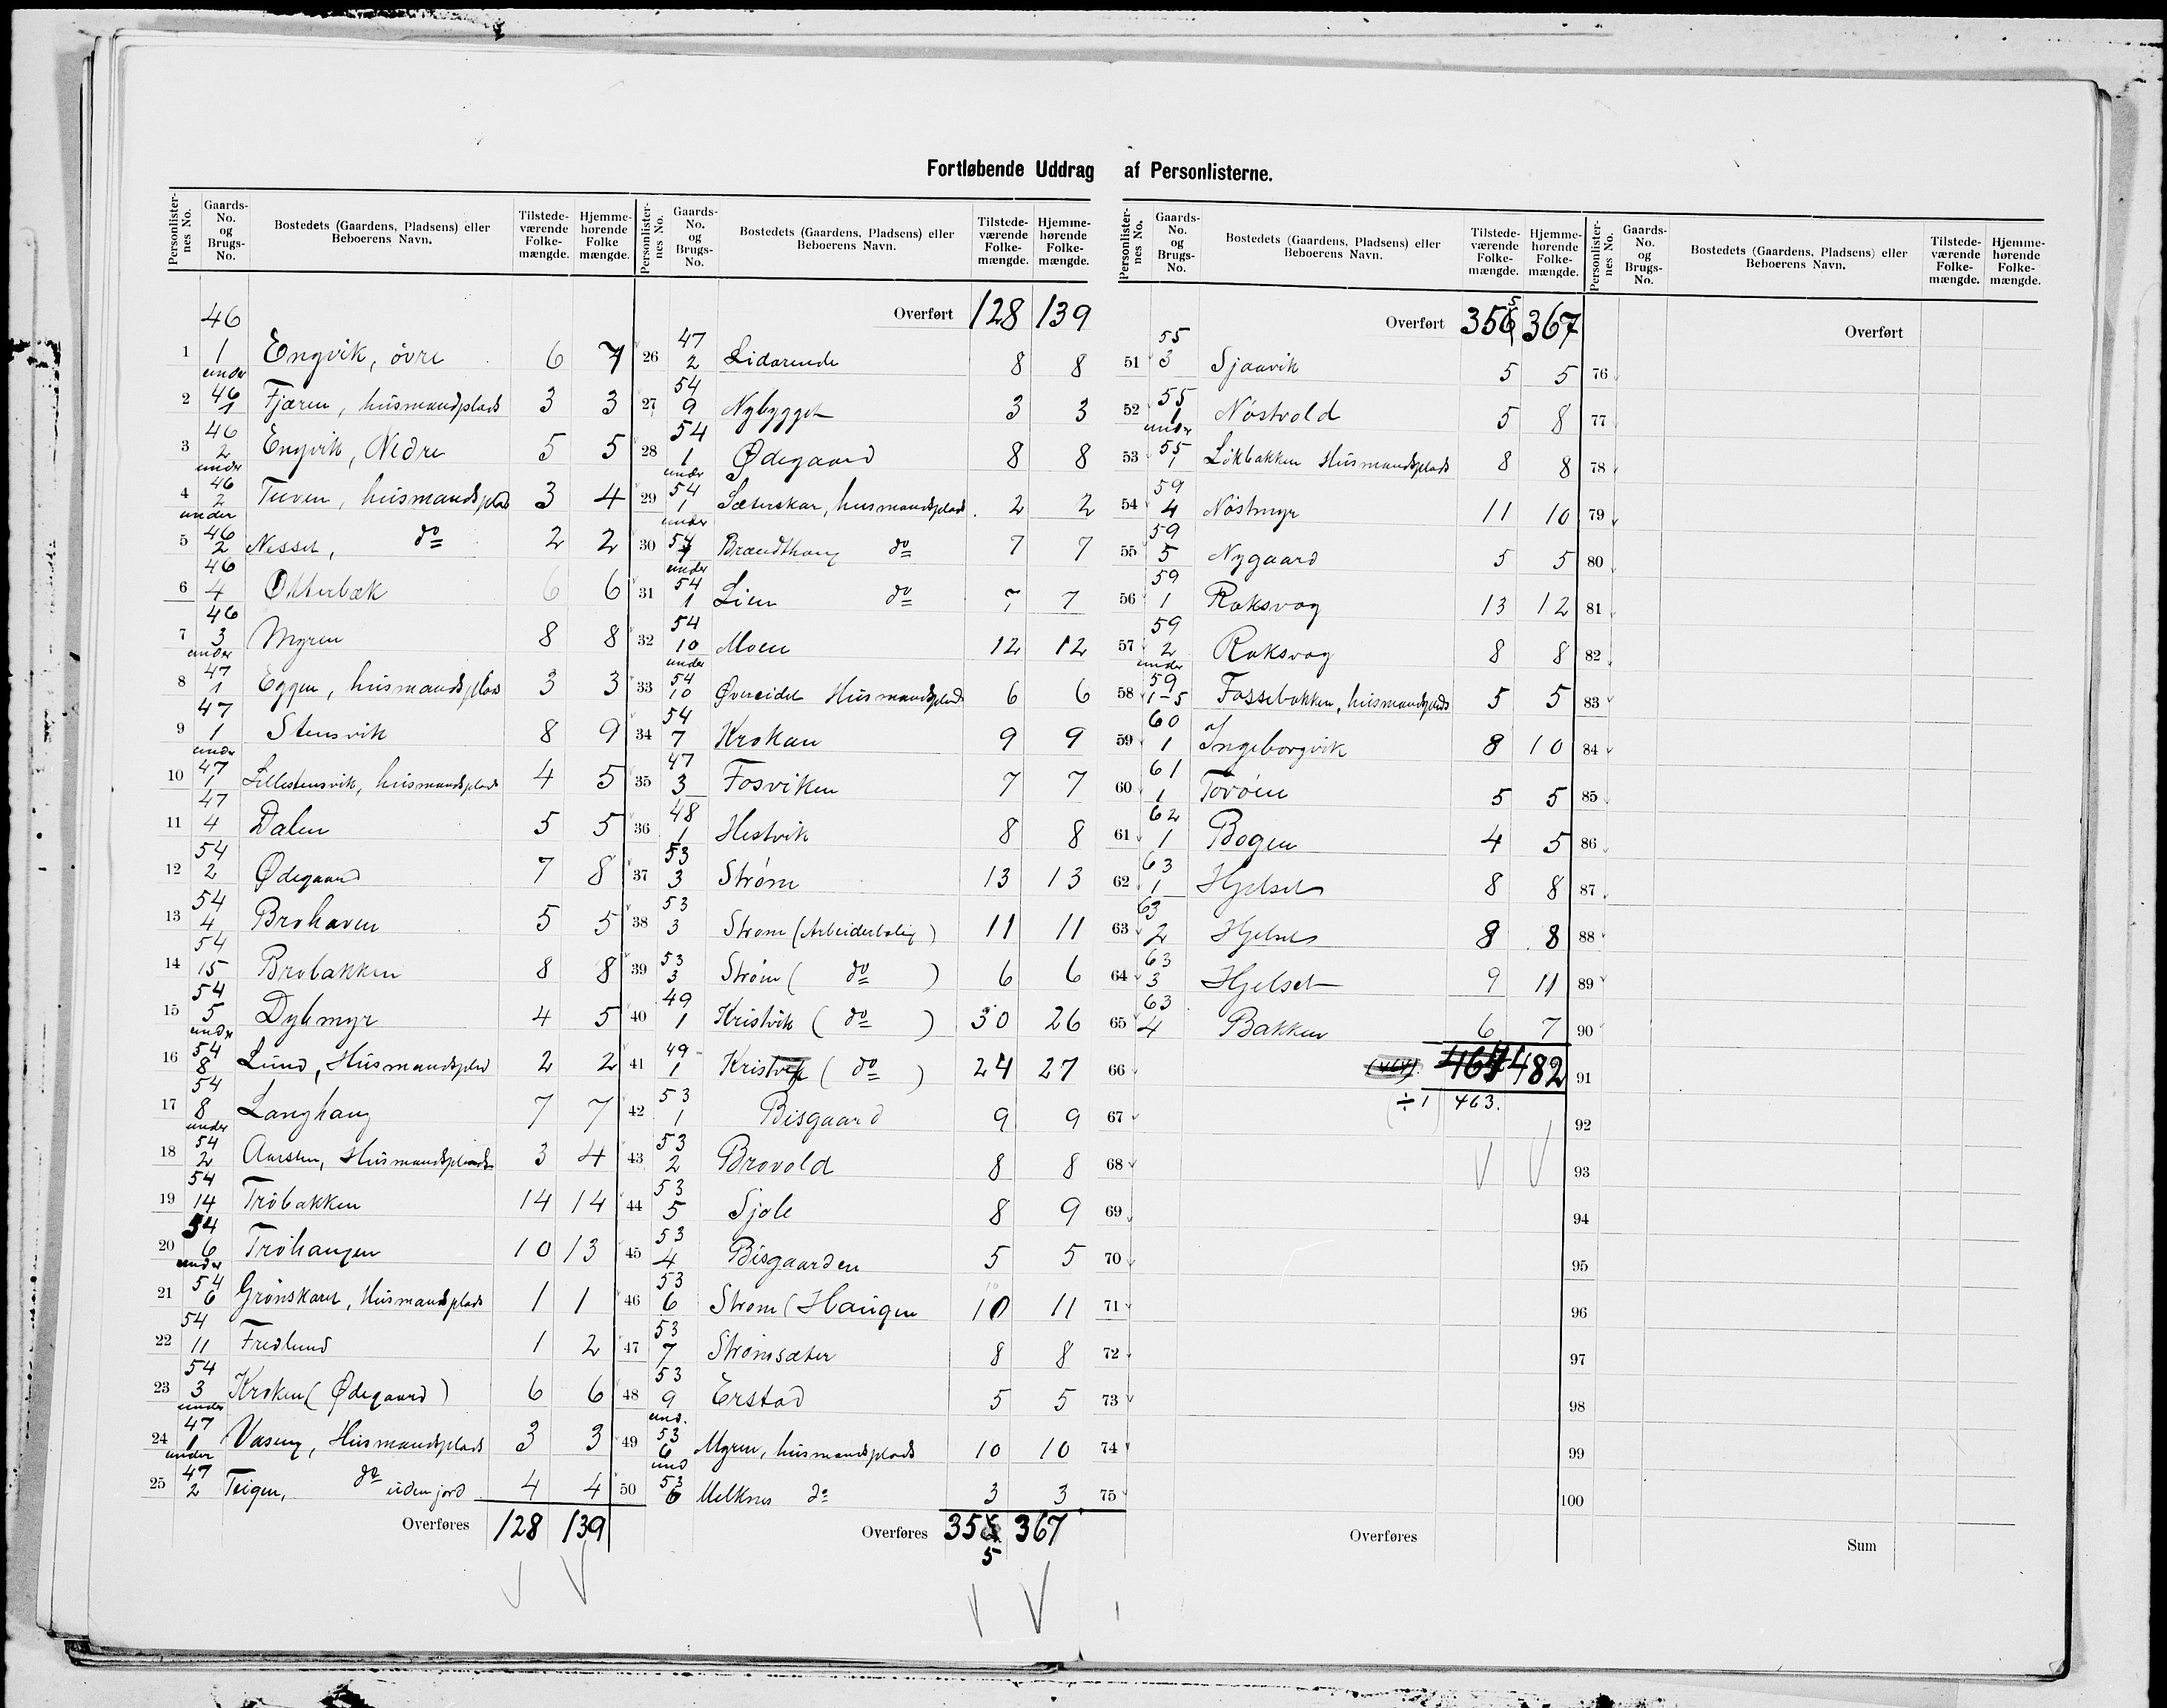 Fortløbende Uddrag af Personlisterne.
Personlisternes No. Gaards-No. og Brugs-No. Bostedets (Gaardens, Pladsens) eller Beboerens Navn. Tilstedeværende Folkemængde. Hjemmehørende Folkemængde.
46
1 1 Engvik, övre 6 7
2 under 46 1 Fjæren, husmandplads 3 3
3 46 2 Engvik, Nedre 5 5
4 under 46 2 Tuven, husmandsplad 3 4
5 under 46 2 Nesset, do 2 2
6 46 4 Otterbæk 6 6
7 46 3 Myren 8 8
8 under 47 1 Eggen, husmandsplas 3 3
9 47 1 Stensvik 8 9
10 under 47 1 Lillestensvik, husmandsplads 4 5
11 47 4 Dalen 5 5
12 54 2 Ødegaard 7 8
13 54 4 Brohaven 5 5
14 54 15 Brobakken 8 8
15 54 5 Dybmyr 4 5
16 under 54 8 Lund, Husmandsplad 2 2
17 54 8 Langhaug 7 7
18 under 54 2 Aarsten, Husmandsplads 3 4
19 54 14 Tröbakken 14 14
20 54 6 Tröhaugen 10 13
21 under 54 6 Grönskaret, Husmandsplads 1 1
22 54 11 Fredlund 1 2
23 54 3 Kroken (Ødegaard) 6 6
24 under 47 1 Vaseng, Husmandsplads 3 3
25 under 47 2 Teigen, do uden jord 4 4
Overføres 128 139
Personlisternes No. Gaards-No. og Brugs-No. Bostedets (Gaardens, Pladsens) eller Beboerens Navn. Tilstedeværende Folkemængde. Hjemmehørende Folkemængde.
Overført 128 139
26 47 2 Lidarende 8 8
27 54 9 Nybygget 3 3
28 54 1 Ødegaard 8 8
29 under 54 1 Sæterskar, husmandsplads 2 2
30 under 54 1 Brandthaug do 7 7
31 under 54 1 Lien do 7 7
32 54 10 Moen 12 12
33 under 54 10 Övereidet Husmandsplads 6 6
34 54 7 Krokan 9 9
35 47 3 Fosviken 7 7
36 48 1 Hestvik 8 8
37 53 3 Ström 13 13
38 53 3 Ström (Arbeiderbolig) 11 11
39 53 3 Ström ( do ) 6 6
40 49 1 Kristvik ( do ) 30 26
41 49 1 Kristvik ( do ) 24 27
42 53 1 Bisgaard 9 9
43 53 2 Brovold 8 8
44 53 5 Sjöle 8 9
45 53 4 Bisgaarden 5 5
46 53 6 Ström (Haugen 10 11
47 53 7 Strömsæter 8 8
48 53 9 Erstad 5 5
49 und. 53 6 Myren, husmandsplads 10 10
50 und 53 6 Melknes do 3 3
Overføres 355 367
Personlisternes No. Gaards-No. og Brugs-No. Bostedets (Gaardens, Pladsens) eller Beboerens Navn. Tilstedeværende Folkemængde. Hjemmehørende Folkemængde.
Overført 355 367
51 55 3 Sjaavik 5 5
52 55 1 Nöstvold 5 8
53 under 55 1 Lökbakken Husmandsplads 8 8
54 59 4 Nöstmyr 11 10
55 59 5 Nygaard 5 5
56 59 1 Roksvog 13 12
57 59 2 Roksvog 8 8
58 under 59 1-5 Fossebakken, husmandsplads 5 5
59 60 1 Ingeborgvik 8 10
60 61 1 Toröen 5 5
61 62 1 Bogen 4 5
62 63 1 Hjelset 8 8
63 63 2 Hjelset 8 8
64 63 3 Hjelset 9 11
65 63 4 Bakken 6 7
66 464 482
67 ÷1 463.
68
69
70
71
72
73
74
75
Overføres
Personlisternes No. Gaards-No. og Brugs-No. Bostedets (Gaardens, Pladsens) eller Beboerens Navn. Tilstedeværende Folkemængde. Hjemmehørende Folkemængde.
Overført
76
77
78
79
80
81
82
83
84
85
86
87
88
89
90
91
92
93
94
95
96
97
98
99
100
Sum